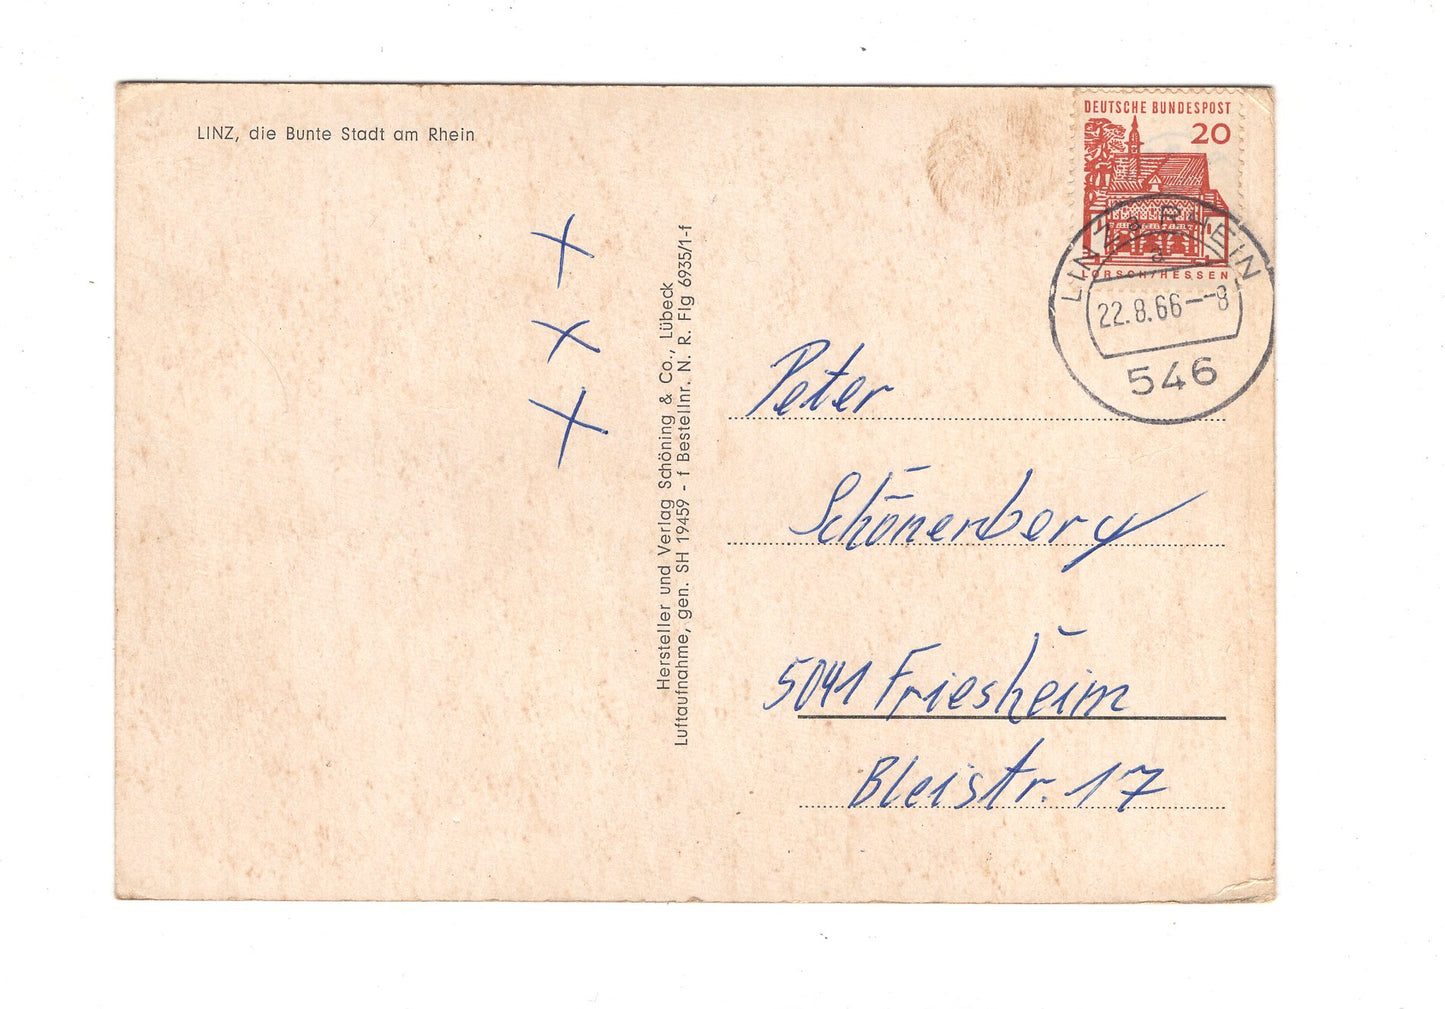 LINZ, die Bunte Stadt am Rhein
+
x
+
Hersteller und Verlag Schöning & Co., Lübeck
Luftaufnahme, gen. SH 19459 - f Bestellnr. N. R. Flg 6935/1-f
DEUTSCHE BUNDESPOST
20
LORSCH/HESSEN
LINZ a RHEIN
a
22.8.66--8
546
Peter
Schönenberg
5041 Friesheim
Bleistr. 17